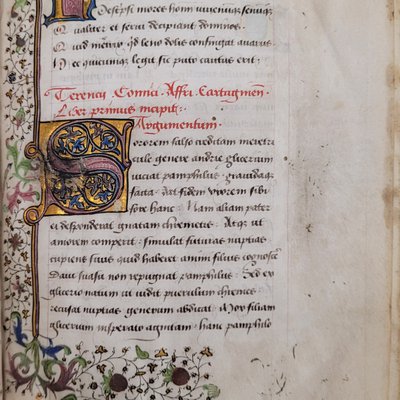 Descripsi mores hominum iuvenumque senumque
Qualiter et servi decipiant dominos
Quid meretrix quid leno dolis confingat avarus
Hec quicumque legit sic puto cautus erit
Terencij Comici Affri Cartaginen
Liber primus incipit
Argumentum
Sororem falso creditam meretri
cule genere andrie glicerium
viciat pamphilus gravidaque
facta dat fidem uxorem sibi
fore hanc Nam aliam pater
ei desponderat gnatam chremetis Atque ut
amorem comperit simulat futuras nuptias
cupiens suus quid haberet animi filius cognoscere
Davi suasu non repugnat pamphilus Sed ex
glicerio natum ut vidit puerulum chremes
recusat nuptias generum abdicat Mox filiam
glicerium insperato agnitam hanc pamphilo